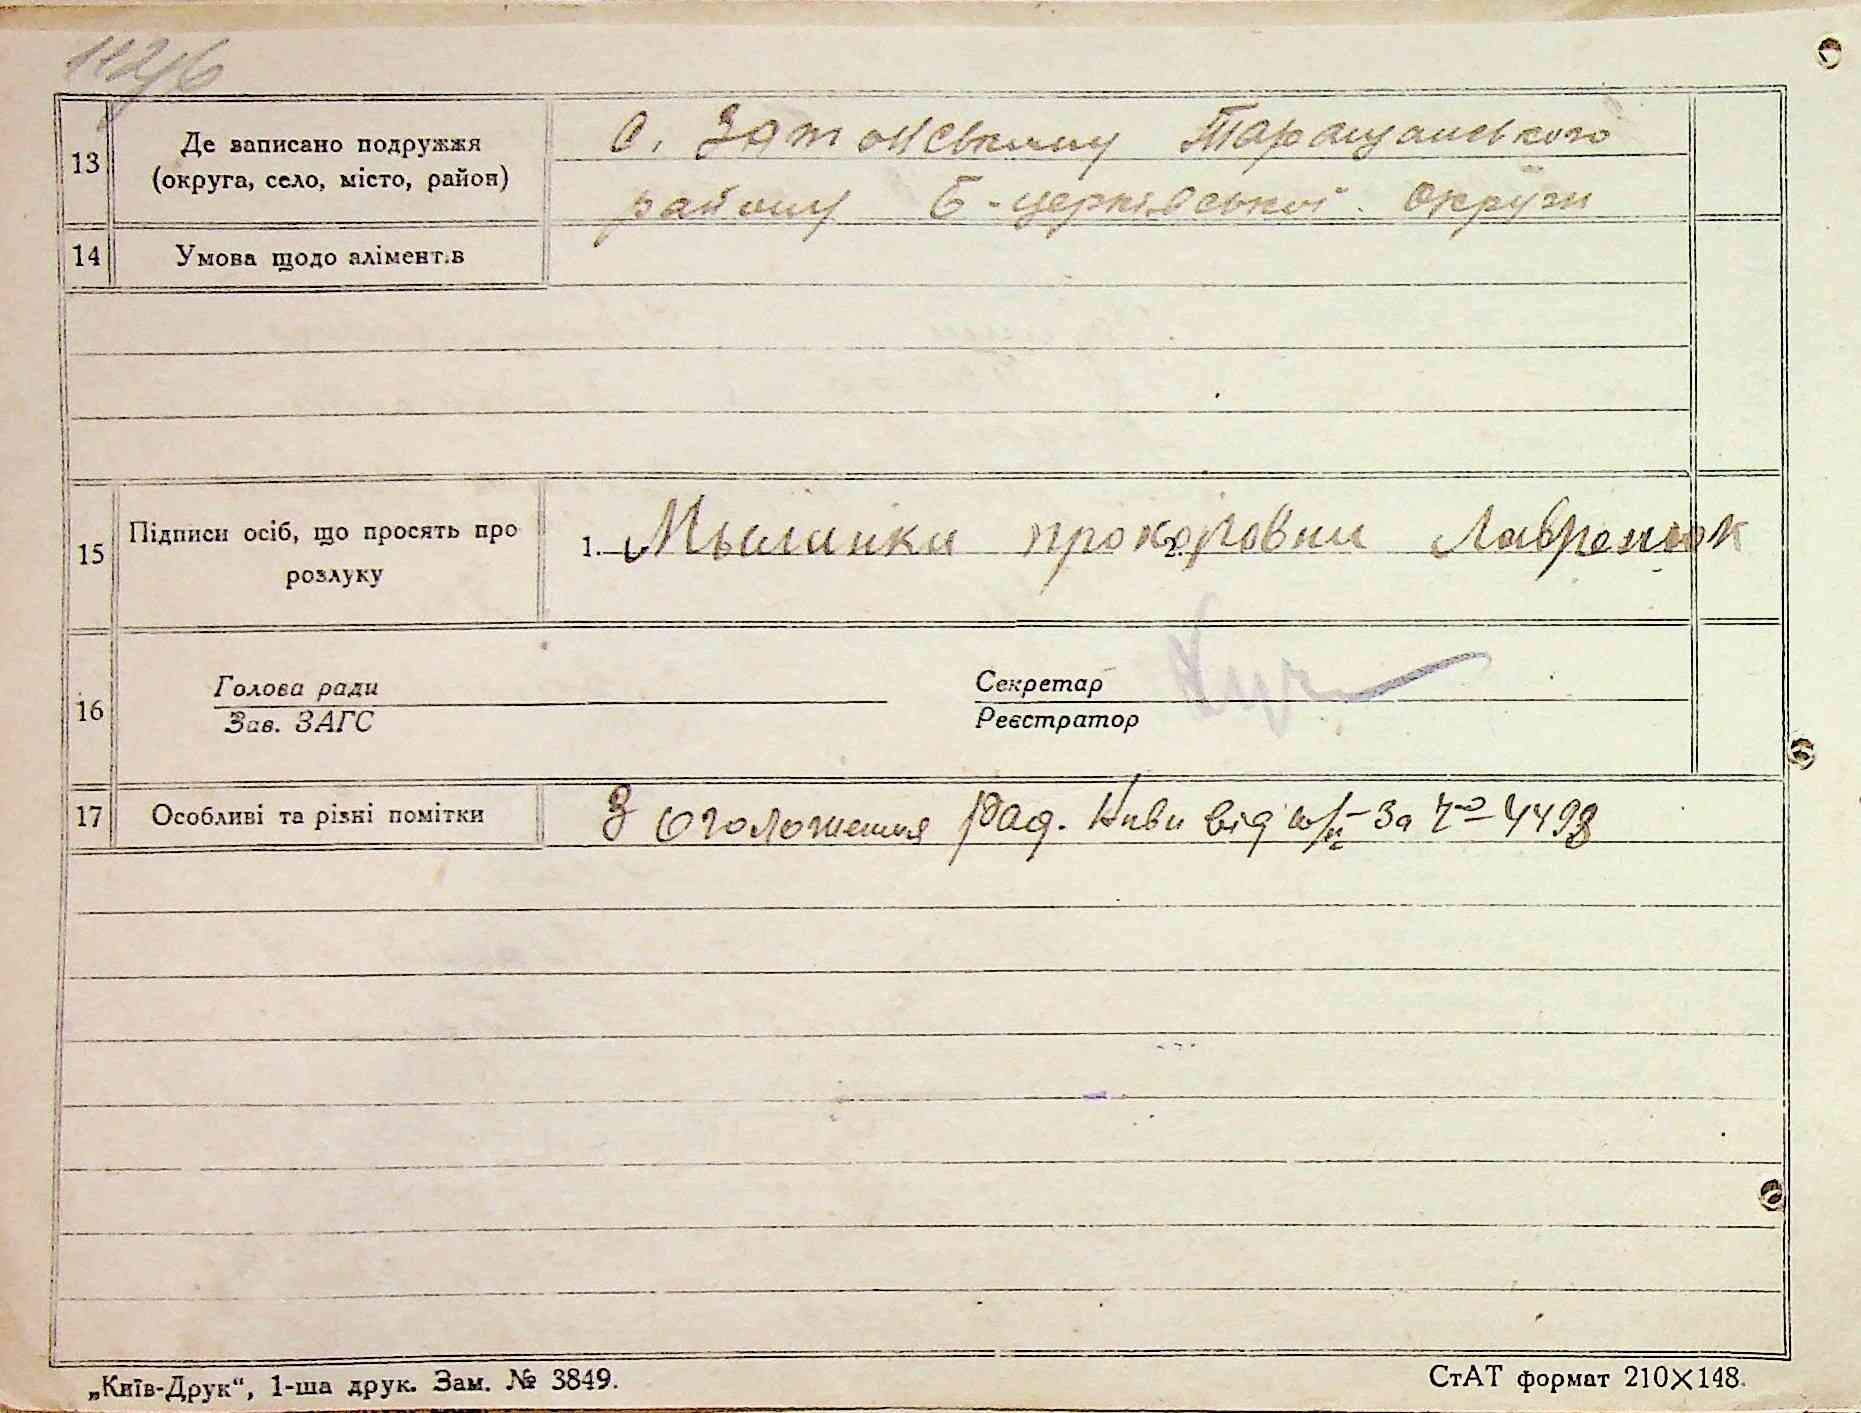 112/6
13
Де записано подружжя
(округа, село, місто, район)
с. Затонському Таращанського
району Б-церківської округи
14
Умова щодо алімент.в
15
Підписи осіб, що просять про
розлуку
1. прохоровни Лавренюк
2.
16
Голова ради
Зав. ЗАГС
Секретар
Реєстратор
17
Особливі та різні помітки
З оголошення Рад. Ниви від За 4498
„Київ-Друк“, 1-ша друк. Зам. № 3849.
СтАТ формат 210×148.